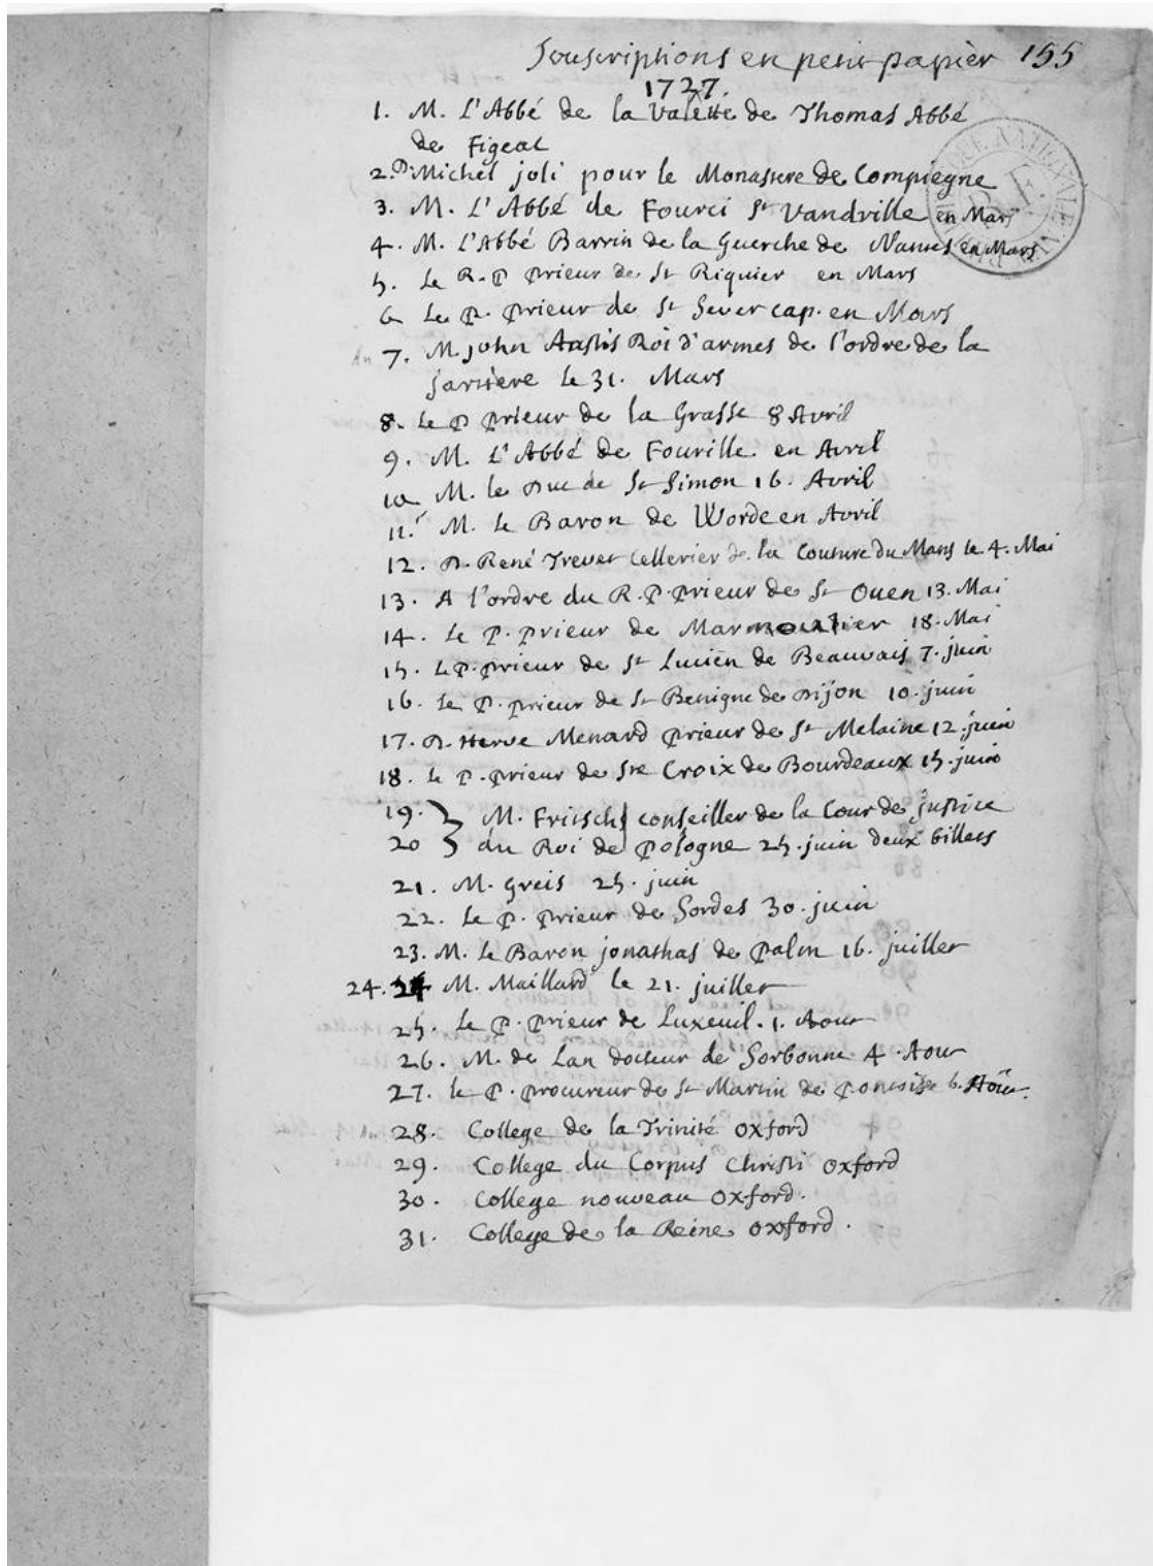 Souscriptions en petit papier 155
1727.
1. M. L'Abbé de la Valette de Thomas Abbé
de Figeac
2. D. Michel joli pour le Monastere de Compiegne
3. M. L'Abbé de Fourci St Vandrille en Mars
4. M. L'Abbé Barrin de la Guerche de Nantes en Mars
5. Le R. P prieur de St Riquier en Mars
6 Le P. Prieur de St Sever cap. en Mars
7. M. john Anstis Roi d'armes de l'ordre de la
jartiere le 31. Mars
8. Le P Prieur de la Grasse 8 Avril
9. M. L'Abbé de Fourille en Avril
10 M. le Duc de St Simon 16. Avril
11. M. Le Baron de Worde en Avril
12. D. René Trevet Cellerier de la Couture du Mans le 4. Mai
13. A l'ordre du R. P. Prieur de St Ouen 13. Mai
14. Le P. prieur de Marmoutier 18. Mai
15. Le P. prieur de St Lucien de Beauvais 7. juin
16. Le P. prieur de St Benigne de Dijon 10. juin
17. D. Herve Menard Prieur de St Melaine 12. juin
18. Le P. prieur de Ste Croix de Bourdeaux 15. juin
19. M. Fritsch conseiller de la Cour de justice
20 du Roi de Pologne 25. juin deux billets
21. M. Greis 25. juin
22. Le P. Prieur de Sordes 30. juin
23. M. Le Baron jonathas de Palm 16. juillet
24. 24 M. Maillard le 21. juillet
25. Le P. Prieur de Luxeuil. 1. Aout
26. M. de Lan docteur de Sorbonne 4. Aout
27. le P. Procureur de St Martin de Pontoise 6. Aout.
28. College de la Trinité oxford
29. College du Corpus Christi oxford
30. College nouveau oxford.
31. College de la Reine oxford.